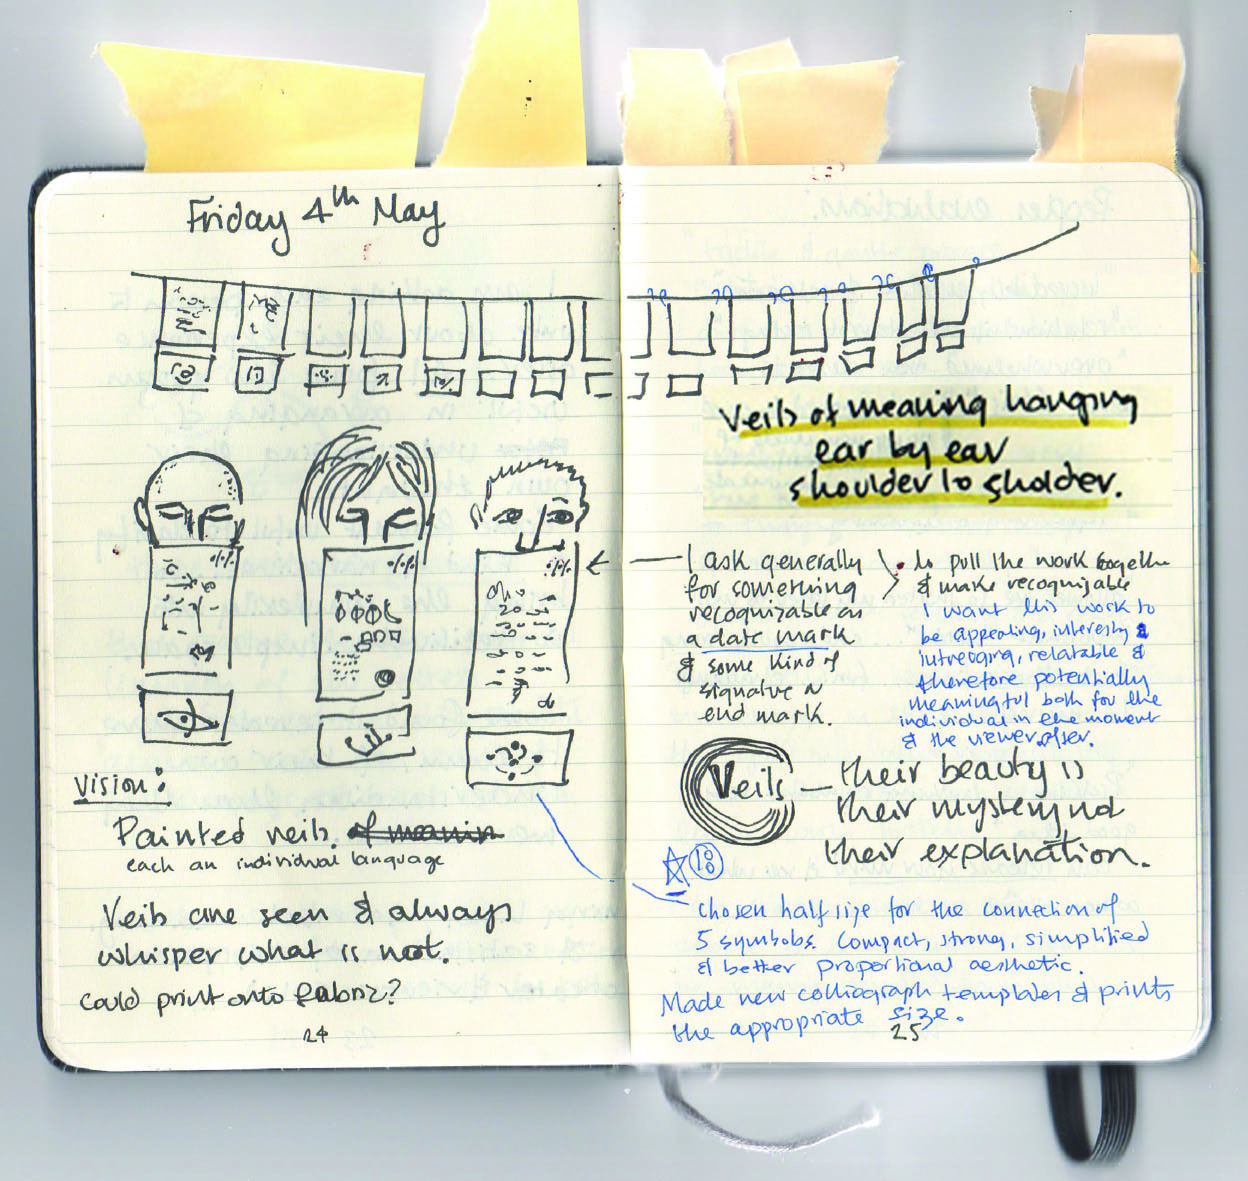 Friday 4th May
Vision:
Painted veils. of meanin
each an individual language
Veils are seen & always
whisper what is not.
Could print onto fabric?
24
Veils of meaning hanging
ear by ear
shoulder to sholder.
I ask generally
for something
recognizable as
a date mark
& some kind of
signature or
end mark.
to pull the work together
& make recognizable
I want this work to
be appealing, interesting &
intreaging, relatable &
therefore potentially
meaningful both for the
individual in the moment
& the viewer after.
Veils — their beauty is
their mystery not
their explanation.
Chosen half size for the connection of
5 symbols. Compact, strong, simplified
& better proportional aesthetic.
Made new collograph templates & prints
the appropriate size.
25